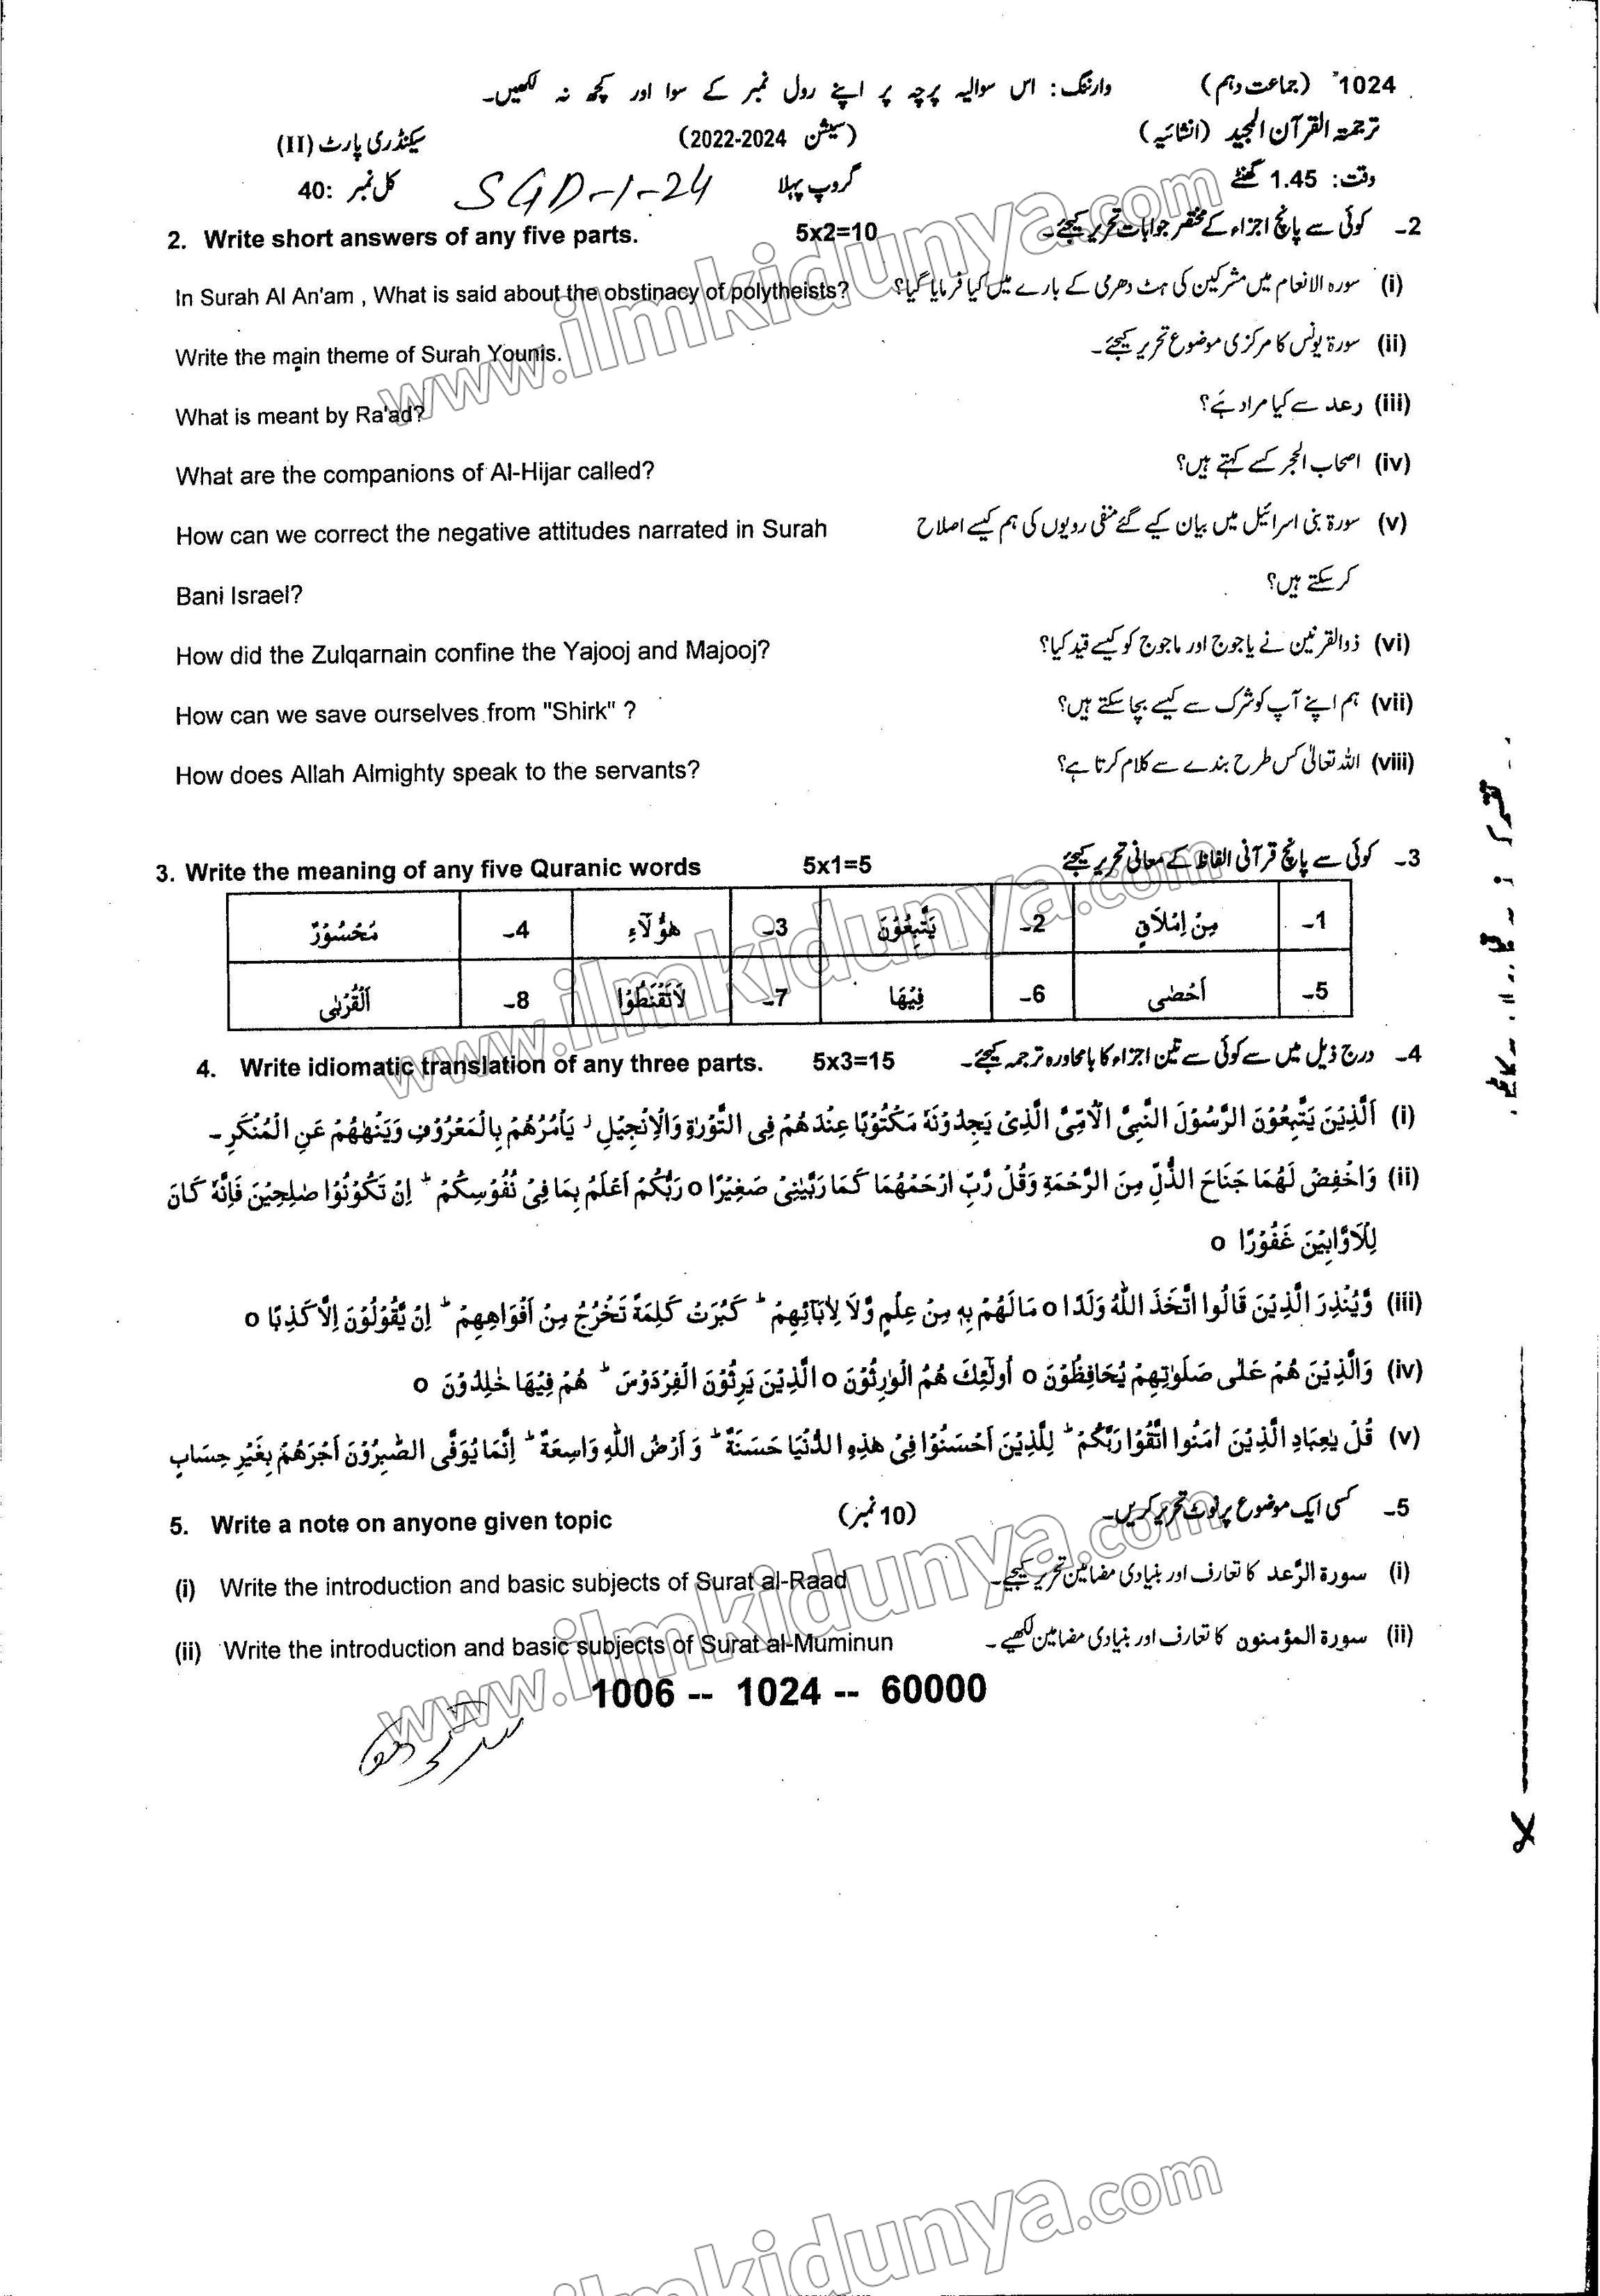 1024 (جماعت دہم) وارننگ: اس سوالیہ پرچہ پر اپنے رول نمبر کے سوا اور کچھ نہ لکھیں۔
ترجمۃ القرآن المجید (انشائیہ) (سیشن 2022-2024) سیکنڈری پارٹ (II)
وقت: 1.45 گھنٹے گروپ پہلا SGD-1-24 کل نمبر: 40
2. Write short answers of any five parts. 5x2=10 2۔ کوئی سے پانچ اجزاء کے مختصر جوابات تحریر کیجئے۔
In Surah Al An'am , What is said about the obstinacy of polytheists? (i) سورہ الانعام میں مشرکین کی ہٹ دھرمی کے بارے میں کیا فرمایا گیا؟
Write the main theme of Surah Younis. (ii) سورۃ یونس کا مرکزی موضوع تحریر کیجئے۔
What is meant by Ra'ad? (iii) رعد سے کیا مراد ہے؟
What are the companions of Al-Hijar called? (iv) اصحاب الحجر کسے کہتے ہیں؟
How can we correct the negative attitudes narrated in Surah (v) سورۃ بنی اسرائیل میں بیان کیے گئے منفی رویوں کی ہم کیسے اصلاح
Bani Israel? کر سکتے ہیں؟
How did the Zulqarnain confine the Yajooj and Majooj? (vi) ذوالقرنین نے یاجوج اور ماجوج کو کیسے قید کیا؟
How can we save ourselves from "Shirk" ? (vii) ہم اپنے آپ کو شرک سے کیسے بچا سکتے ہیں؟
How does Allah Almighty speak to the servants? (viii) اللہ تعالیٰ کس طرح بندے سے کلام کرتا ہے؟
3. Write the meaning of any five Quranic words 5x1=5 3۔ کوئی سے پانچ قرآنی الفاظ کے معانی تحریر کیجئے
1۔ مِنْ اِمْلَاقٍ 2۔ يَتَّبِعُوْنَ 3۔ هٰٓؤُلَآءِ 4۔ مَحْسُوْرٌ
5۔ اَحْصٰى 6۔ فِيْهَا 7۔ لَاتَقْنَطُوْا 8۔ اَلْقُرْبٰى
4. Write idiomatic translation of any three parts. 5x3=15 4۔ درج ذیل میں سے کوئی سے تین اجزاء کا بامحاورہ ترجمہ کیجئے۔
(i) اَلَّذِيْنَ يَتَّبِعُوْنَ الرَّسُوْلَ النَّبِىَّ الْاُمِّىَّ الَّذِىْ يَجِدُوْنَهٗ مَكْتُوْبًا عِنْدَهُمْ فِى التَّوْرٰةِ وَالْاِنْجِيْلِ ؗ يَاْمُرُهُمْ بِالْمَعْرُوْفِ وَيَنْهٰهُمْ عَنِ الْمُنْكَرِ۔
(ii) وَاخْفِضْ لَهُمَا جَنَاحَ الذُّلِّ مِنَ الرَّحْمَةِ وَقُلْ رَّبِّ ارْحَمْهُمَا كَمَا رَبَّيٰنِىْ صَغِيْرًا o رَبُّكُمْ اَعْلَمُ بِمَا فِىْ نُفُوْسِكُمْ ؕ اِنْ تَكُوْنُوْا صٰلِحِيْنَ فَاِنَّهٗ كَانَ
لِلْاَوَّابِيْنَ غَفُوْرًا o
(iii) وَّيُنْذِرَ الَّذِيْنَ قَالُوا اتَّخَذَ اللّٰهُ وَلَدًا o مَا لَهُمْ بِهٖ مِنْ عِلْمٍ وَّلَا لِاٰبَآئِهِمْ ؕ كَبُرَتْ كَلِمَةً تَخْرُجُ مِنْ اَفْوَاهِهِمْ ؕ اِنْ يَّقُوْلُوْنَ اِلَّا كَذِبًا o
(iv) وَالَّذِيْنَ هُمْ عَلٰى صَلَوٰتِهِمْ يُحَافِظُوْنَ o اُولٰٓئِكَ هُمُ الْوٰرِثُوْنَ o الَّذِيْنَ يَرِثُوْنَ الْفِرْدَوْسَ ؕ هُمْ فِيْهَا خٰلِدُوْنَ o
(v) قُلْ يٰعِبَادِ الَّذِيْنَ اٰمَنُوا اتَّقُوْا رَبَّكُمْ ؕ لِلَّذِيْنَ اَحْسَنُوْا فِىْ هٰذِهِ الدُّنْيَا حَسَنَةٌ ؕ وَاَرْضُ اللّٰهِ وَاسِعَةٌ ؕ اِنَّمَا يُوَفَّى الصّٰبِرُوْنَ اَجْرَهُمْ بِغَيْرِ حِسَابٍ
5. Write a note on anyone given topic (10 نمبر) 5۔ کسی ایک موضوع پر نوٹ تحریر کریں۔
(i) Write the introduction and basic subjects of Surat al-Raad (i) سورۃ الرَّعد کا تعارف اور بنیادی مضامین تحریر کیجیے۔
(ii) Write the introduction and basic subjects of Surat al-Muminun (ii) سورۃ المؤمنون کا تعارف اور بنیادی مضامین لکھیے۔
1006 -- 1024 -- 60000
www.ilmkidunya.com
www.ilmkidunya.com
www.ilmkidunya.com
ilmkidunya.com